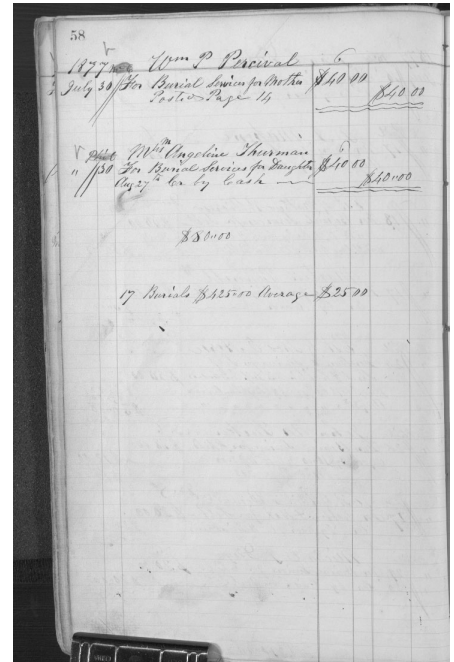 58
1877 Wm P Percival 6
July 30 For Burial Services for Mother $40 00
Posted Page 14 $40.00
Mrs Angeline Thurman 6
" 30 For Burial Services for Daughter $40.00
Aug 27th Cr by Cash $40.00
$80.00
17 Burials $425.00 Average $25 00